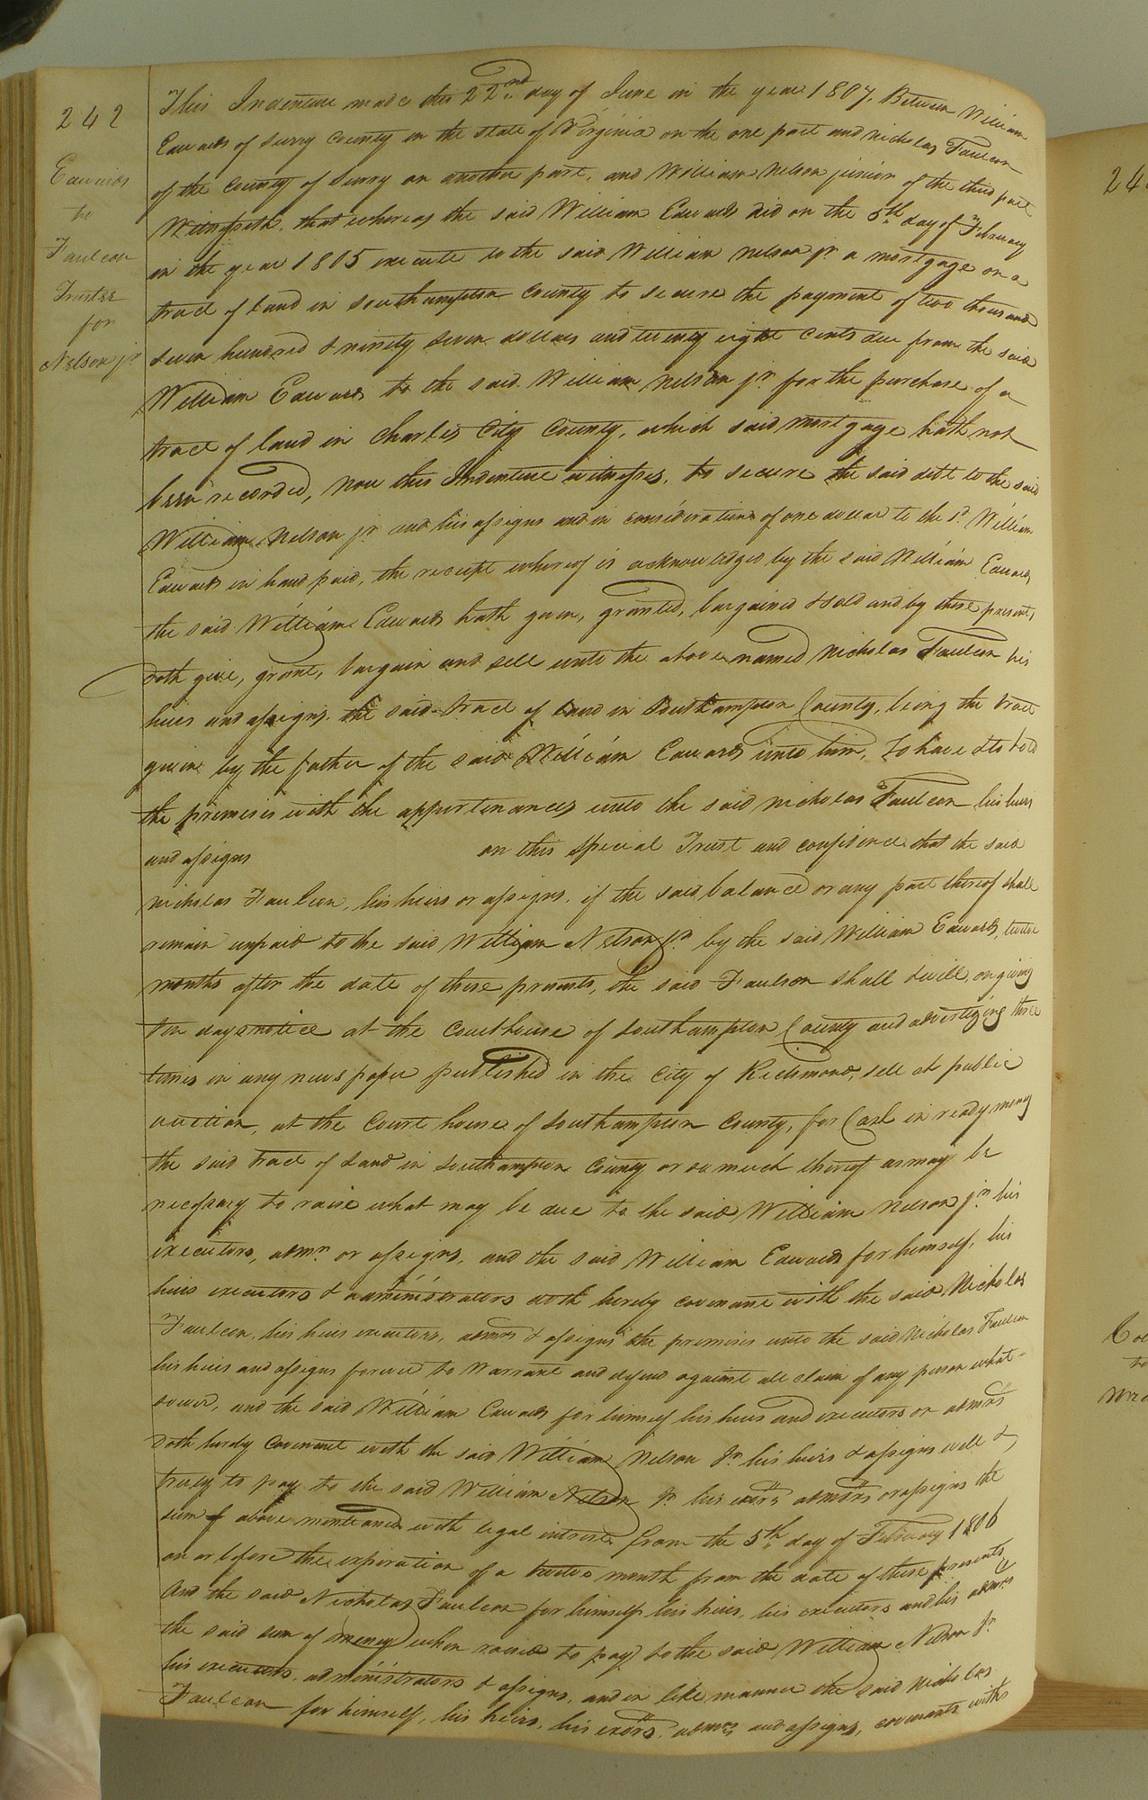 242
Edwards
to
Faulcon
Trustee
for
Nelson jr
This Indenture made this 22nd day of June in the year 1807, Between William
Edwards of Surry County in the state of Virginia on the one part and Nicholas Faulcon
of the County of Surry on another part, and William Nelson junior of the third part
Witnesseth, that whereas the said William Edwards did on the 5th day of February
in the year 1805 execute to the said William Nelson jr a mortgage on a
tract of Land in Southampton County to secure the payment of two thousand
seven hundred & ninety seven dollars and twenty eight cents due from the said
William Edwards to the said William Nelson jr for the purchase of a
tract of land in Charles City County, which said mortgage hath not
been recorded, Now this Indenture witnesses, to secure the said debt to the said
William Nelson jr and his assigns and in consideration of one dollar to the sd William
Edwards in hand paid, the receipt whereof is acknowledged by the said William Edwards
the said William Edwards hath given, granted, bargained & sold and by these presents,
doth give, grant, bargain and sell unto the above named Nicholas Faulcon his
heirs and assigns the said tract of Land in Southampton County, being the tract
given by the father of the said William Edwards unto him, To have & to hold
the premises with the appurtenances unto the said Nicholas Faulcon his heirs
and assigns on this special Trust and confidence that the said
Nicholas Faulcon, his heirs or assigns, if the said balance or any part thereof shall
remain unpaid to the said William Nelson jr by the said William Edwards, twelve
months after the date of these presents, the said Faulcon shall & will, on giving
ten days notice at the Courthouse of Southampton County and advertizing three
times in any news paper published in the City of Richmond, sell at public
auction, at the Court house of Southampton County, for Cash in ready money
the said tract of Land in Southampton County or so much thereof as may be
necessary to raise what may be due to the said William Nelson jr his
executors, admrs or assigns, and the said William Edwards for himself, his
heirs executors & administrators doth hereby covenant with the said Nicholas
Faulcon, his heirs executors, admrs & assigns the premises unto the said Nicholas Faulcon
his heirs and assigns forever to Warrant and defend against all claim of any person what-
soever, and the said William Edwards for himself his heirs and executors or admrs
doth hereby covenant with the said William Nelson Jr his heirs & assigns well &
truly to pay to the said William Nelson Jr his exors admrs or assigns the
sum of above mentioned with legal interest from the 5th day of February 1806
on or before the expiration of a twelve month from the date of these presents
And the said Nicholas Faulcon for himself his heirs, his executors and his admrs
the said sum of money when raised to pay to the said William Nelson Jr
his executors, administrators & assigns, and in like manner the said Nicholas
Faulcon for himself, his heirs, his exors, admrs and assigns, covenants with